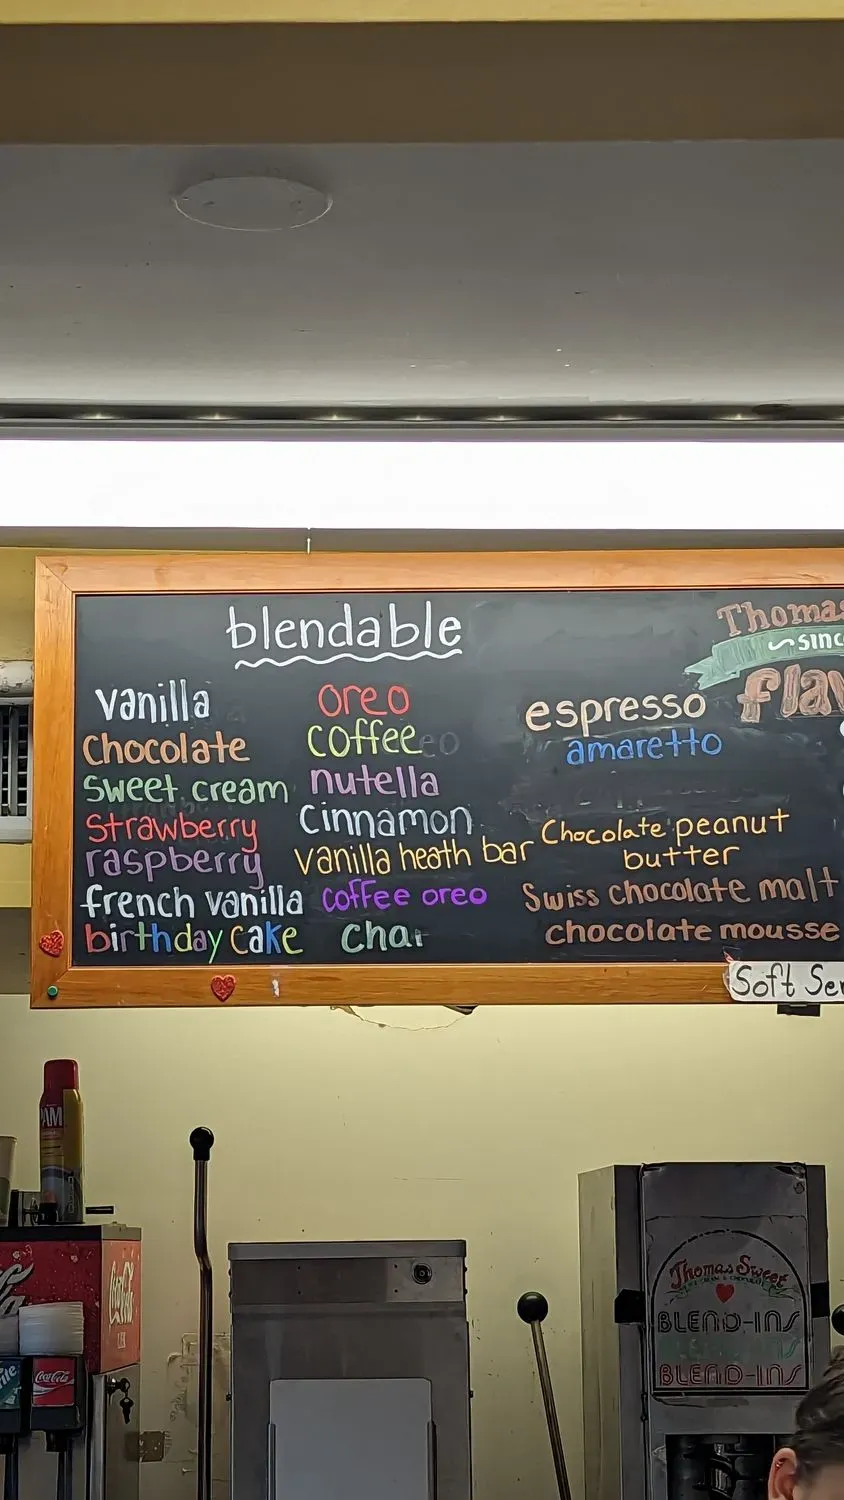 blendable
vanilla
Chocolate
Sweet cream
Strawberry
raspberry
french vanilla
birthday cake
oreo
coffee
nutella
Cinnamon
vanilla heath bar
coffee oreo
chai
espresso
amaretto
Chocolate peanut
butter
Swiss chocolate malt
chocolate mousse
Thomas
Soft
Coca-Cola
Coca-Cola
Thomas Sweet
BLEND-INS
BLEND-INS
BLEND-INS